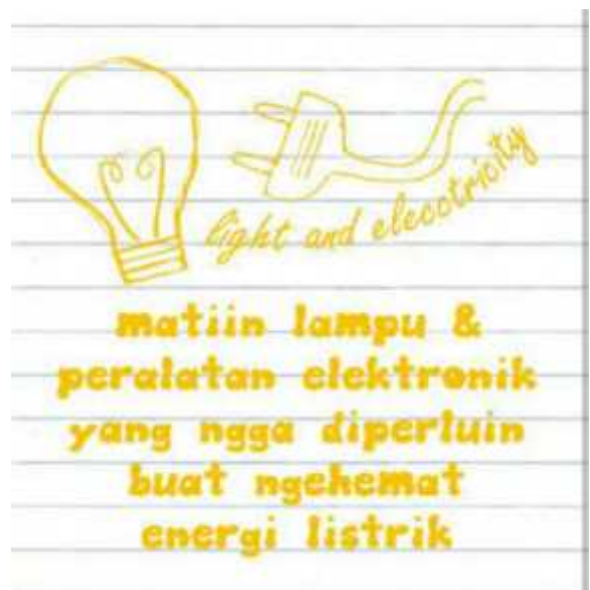 light and elecctricity
matiin lampu &
peralatan elektronik
yang ngga diperluin
buat ngehemat
energi listrik